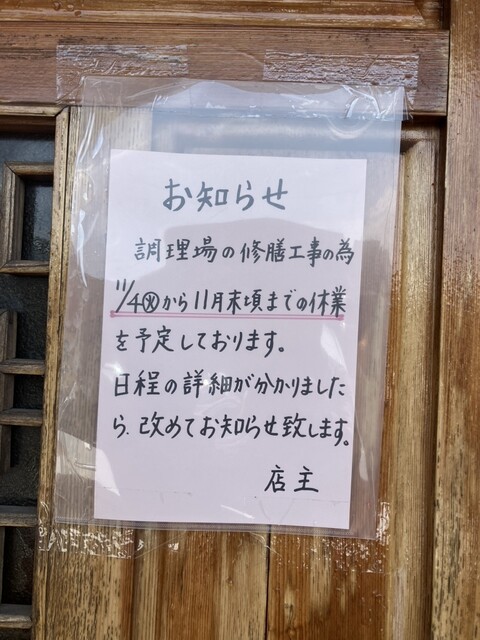 お知らせ
調理場の修膳工事の為
11/4㊋から11月末頃までの休業
を予定しております。
日程の詳細が分かりました
ら、改めてお知らせ致します。
店主